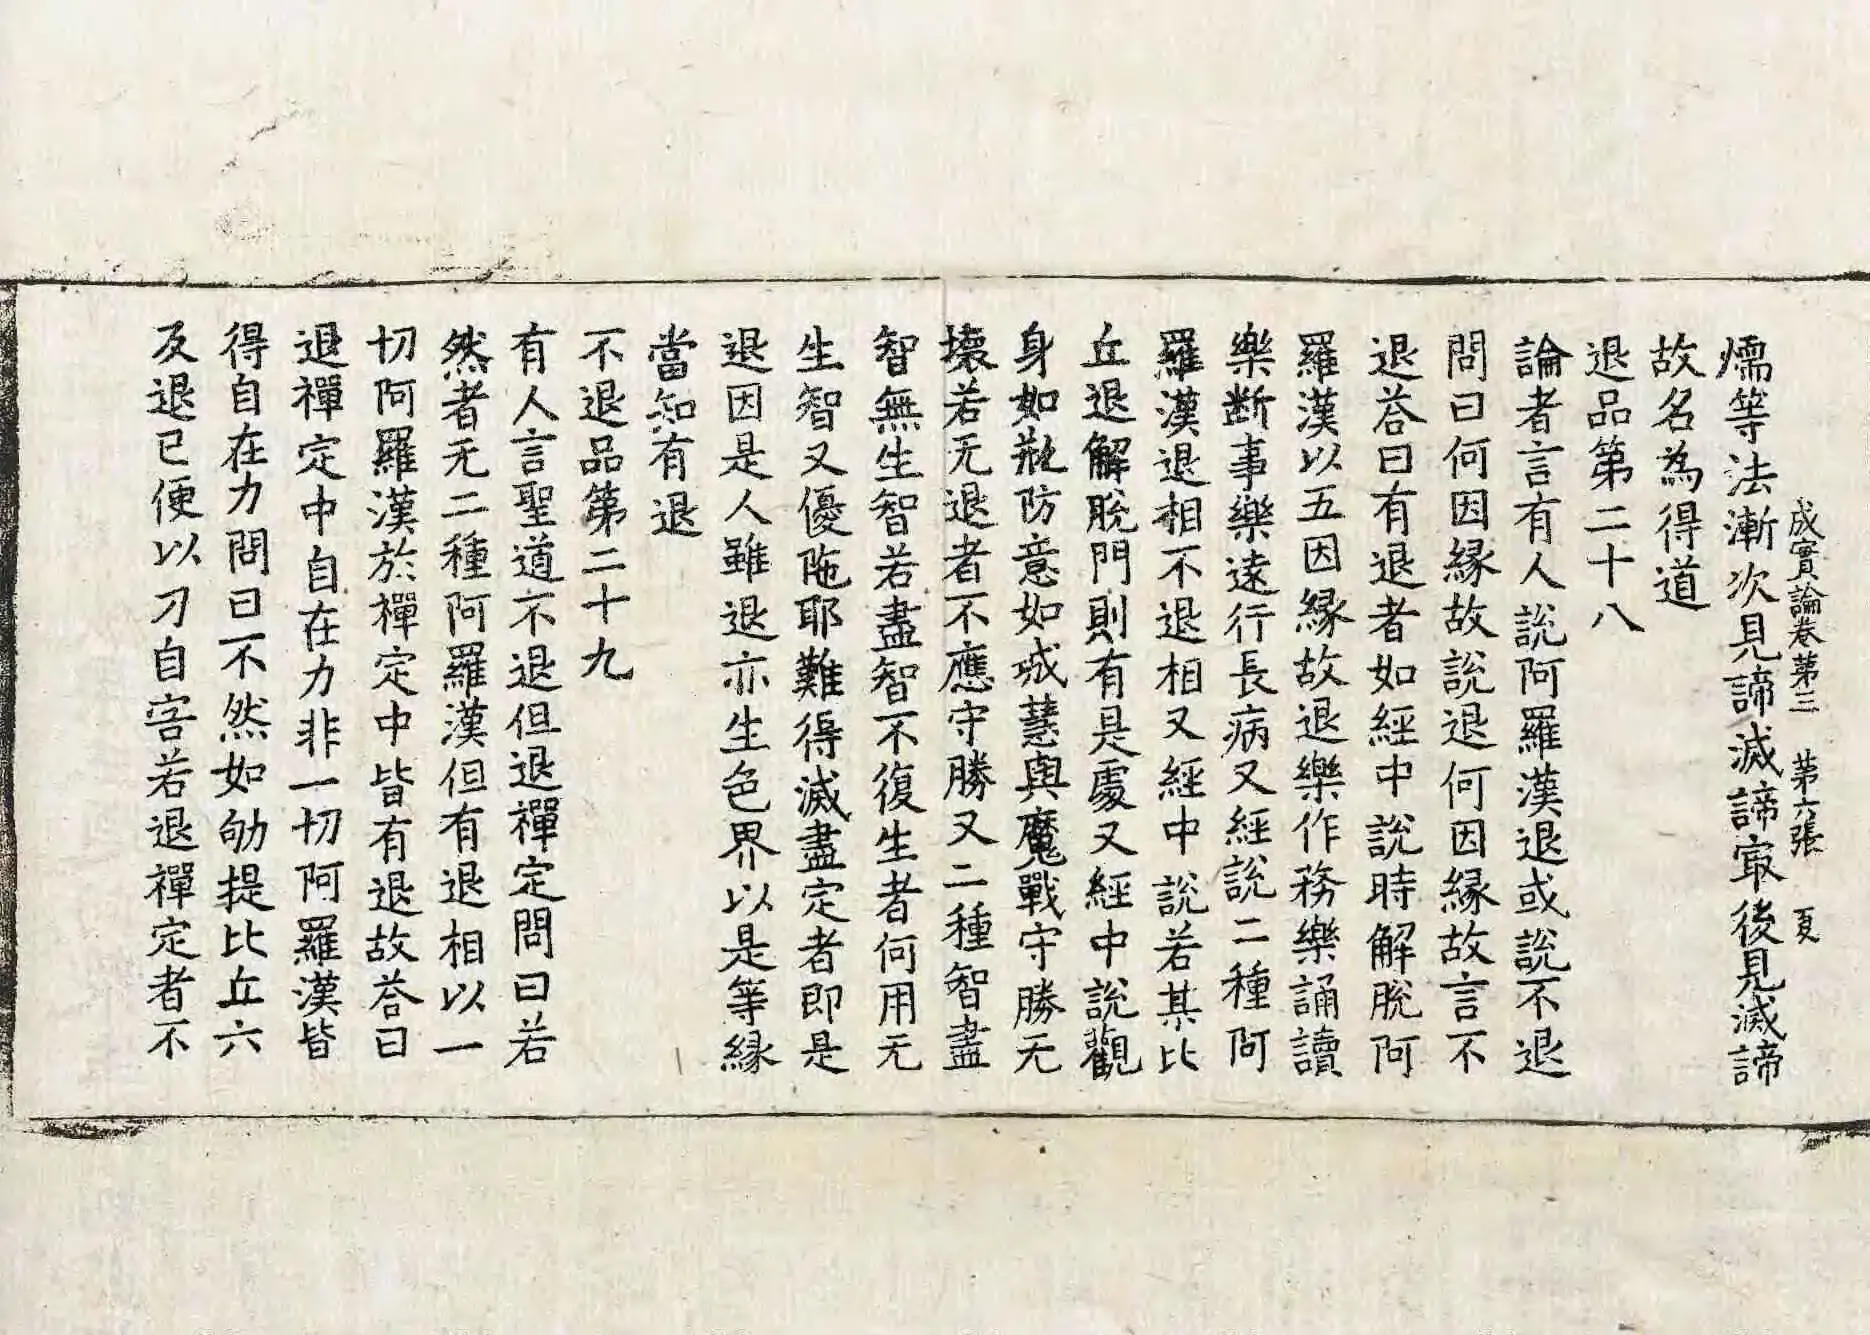 成實論卷第三　第六張　夏
煗等法漸次見諦滅諦㝡後見滅諦
故名為得道
退品第二十八
論者言有人說阿羅漢退或說不退
問曰何因緣故說退何因緣故言不
退荅曰有退者如經中說時解脫阿
羅漢以五因緣故退樂作務樂誦讀
樂断事樂遠行長病又經說二種阿
羅漢退相不退相又經中說若某比
丘退解脫門則有是處又經中說觀
身如瓶防意如城慧與魔戰守勝无
壞若无退者不應守勝又二種智盡
智無生智若盡智不復生者何用无
生智又優陁耶難得滅盡定者即是
退因是人雖退亦生色界以是等緣
當知有退
不退品第二十九
有人言聖道不退但退禪定問曰若
然者无二種阿羅漢但有退相以一
切阿羅漢於禪定中皆有退故荅曰
退禪定中自在力非一切阿羅漢皆
得自在力問曰不然如劬提比丘六
反退已便以刀自害若退禪定者不